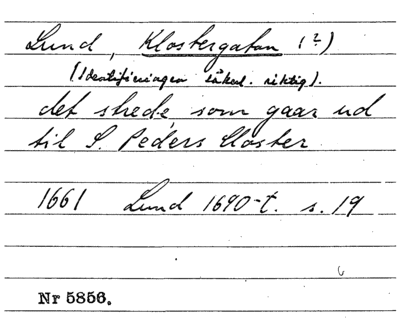 Lund, Klostergatan (?)
(Identifieringen säkert riktig).
det strede, som gaar ud
til S. Peders Closter
1661 Lund 1690-t. s. 19
6
Nr 5856.